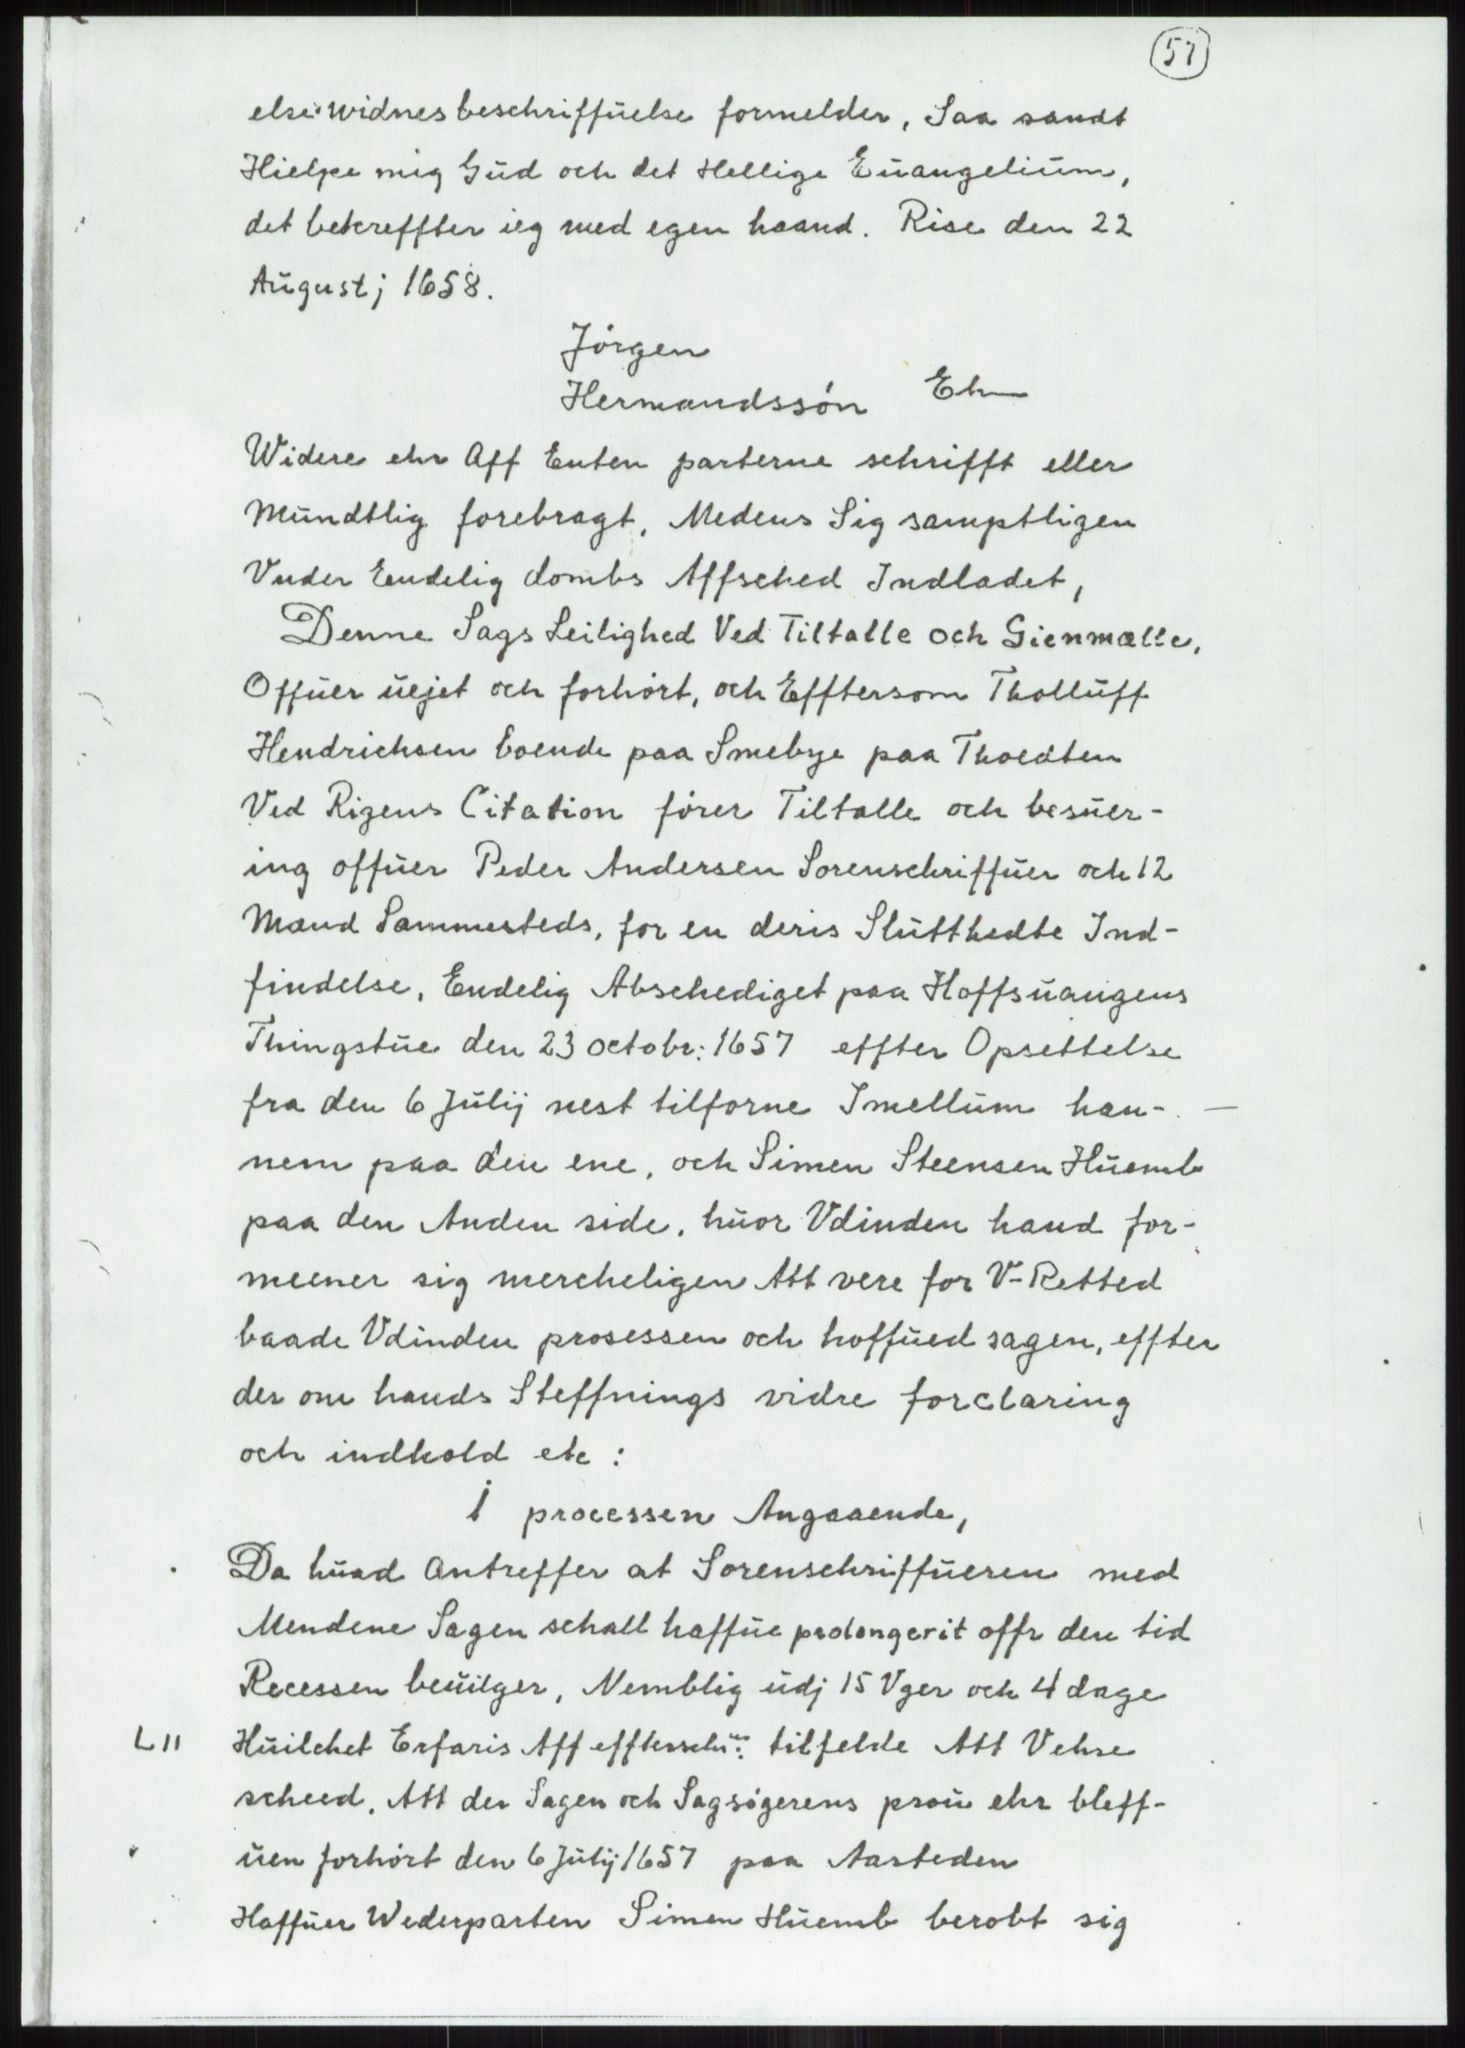 57
else widnesbeschriffuelse formelder, Saa sandt
Hielpe mig Gud och det Hellige Euangelium,
det bekreffter ieg med egen haand. Rise den 22
Augustj 1658.
Jórgen
Hermandssón Eh
Widere ehr Aff Enten parterne schrifft eller
Mundtlig forebragt, Medens Sig samptligen
Vnder Endelig dombs Affsched Indladet,
Denne Sags Leilighed Ved Tiltalle och Gienmælle,
Offuer uejet och forhórt, och Efftersom Tholluff
Hendrichsen boende paa Smebye paa Thoedten
Ved Rigens Citation fórer Tiltalle och besuer-
ing offuer Peder Andersen Sorenschriffuer och 12
Mænd Sammesteds, for en deris Slutthedte Ind-
findelse, Endelig Abschediget paa Hoffsuangens
Thingstue den 23 octobr: 1657 effter Opsettelse
fra den 6 Julij nest tilforne Imellum han-
nem paa den ene, och Simen Steensen Huemb
paa den Anden side, huor Vdinden hand for-
meener sig mercheligen Att vere for V-Retted
baade Vdinden prosessen och hoffued sagen, effter
der om hands Steffnings vidre forclaring
och indhold etc:
I processen Angaaende,
Da huad Antreffer at Sorenschriffueren med
Mendene Sagen schall haffue prolongerit offr den tid
Recessen beuilger, Nemblig udj 15 Vger och 4 dage
L II Huilchet Erfaris Aff effterschr: tilfelde Att Vehre
scheed, Att der Sagen och Sagsógerens prou ehr bleff-
uen forhórt den 6 Julij 1657 paa Aasteden
Haffuer Wederparten Simen Huemb berobt sig